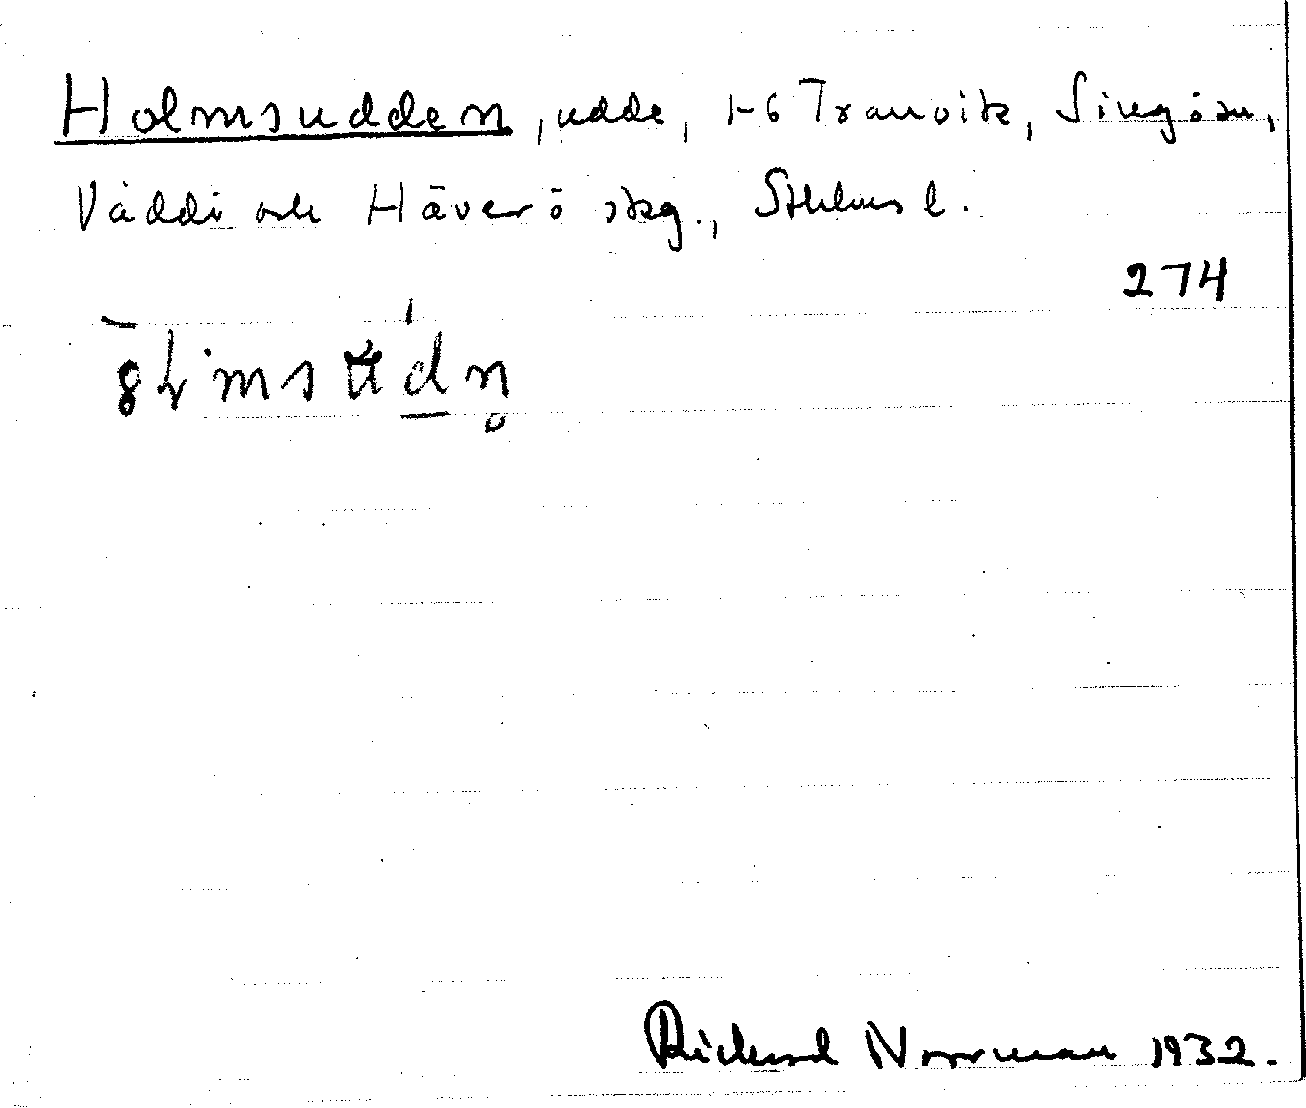 Holmsudden, udde, 1-6 Tranvik, Singön,
Väddö och Häverö skg., Sthlms l.
274
Rickard Norrman 1932.